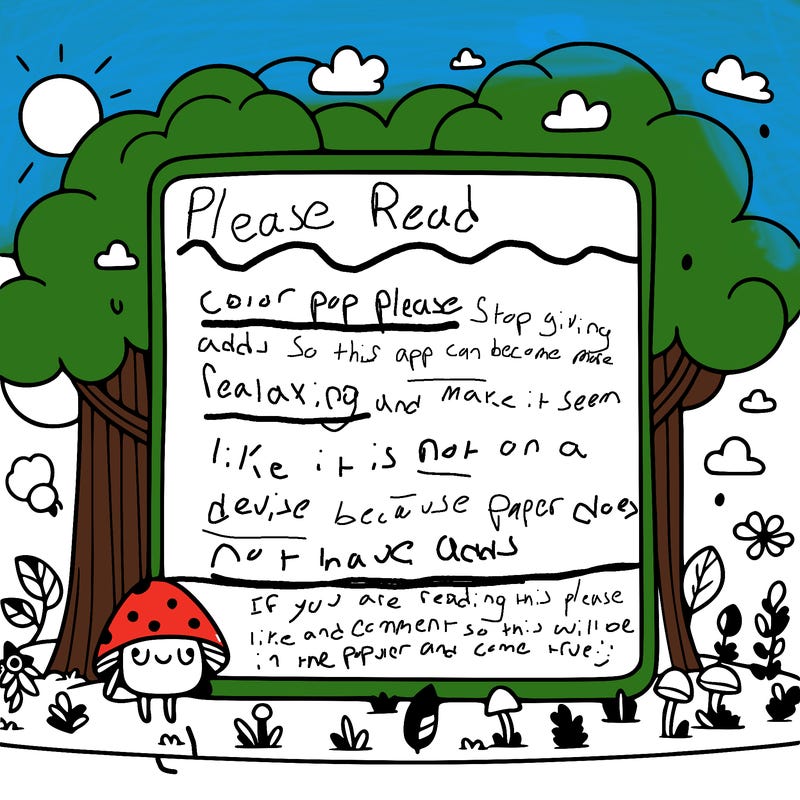 Please Read
Color pop please Stop giving
adds So this app can become more
realaxing and make it seem
like it is not on a
devise because paper does
not have adds
If you are reading this please
like and comment so this will be
in the populer and come true:)